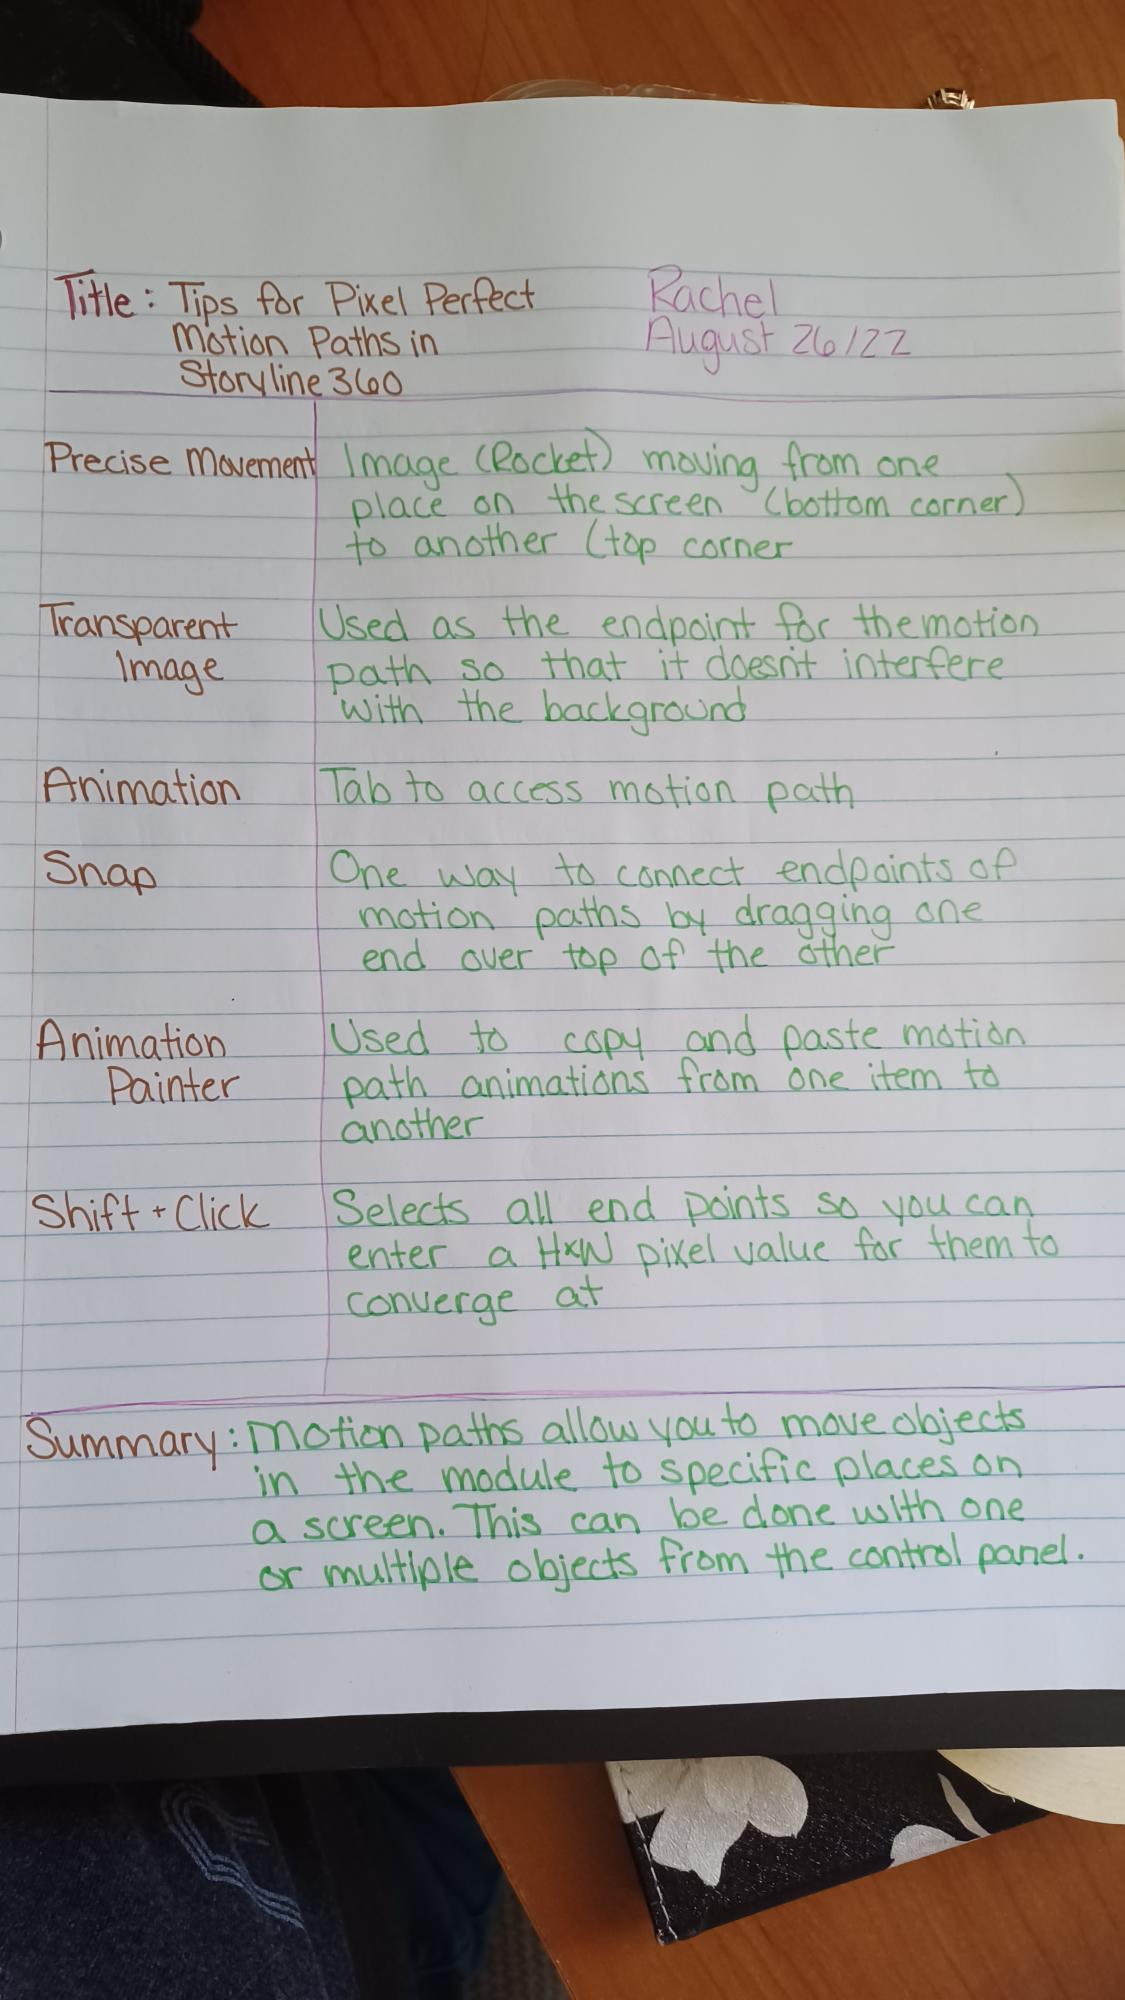 Title: Tips for Pixel Perfect
Motion Paths in
Storyline 360
Rachel
August 26/22
Precise Movement
Image (Rocket) moving from one
place on the screen (bottom corner)
to another (top corner
Transparent
Image
Used as the endpoint for the motion
path so that it doesn't interfere
with the background
Animation
Tab to access motion path
Snap
One way to connect endpoints of
motion paths by dragging one
end over top of the other
Animation
Painter
Used to copy and paste motion
path animations from one item to
another
Shift + Click
Selects all end points so you can
enter a HxW pixel value for them to
converge at
Summary: Motion paths allow you to move objects
in the module to specific places on
a screen. This can be done with one
or multiple objects from the control panel.